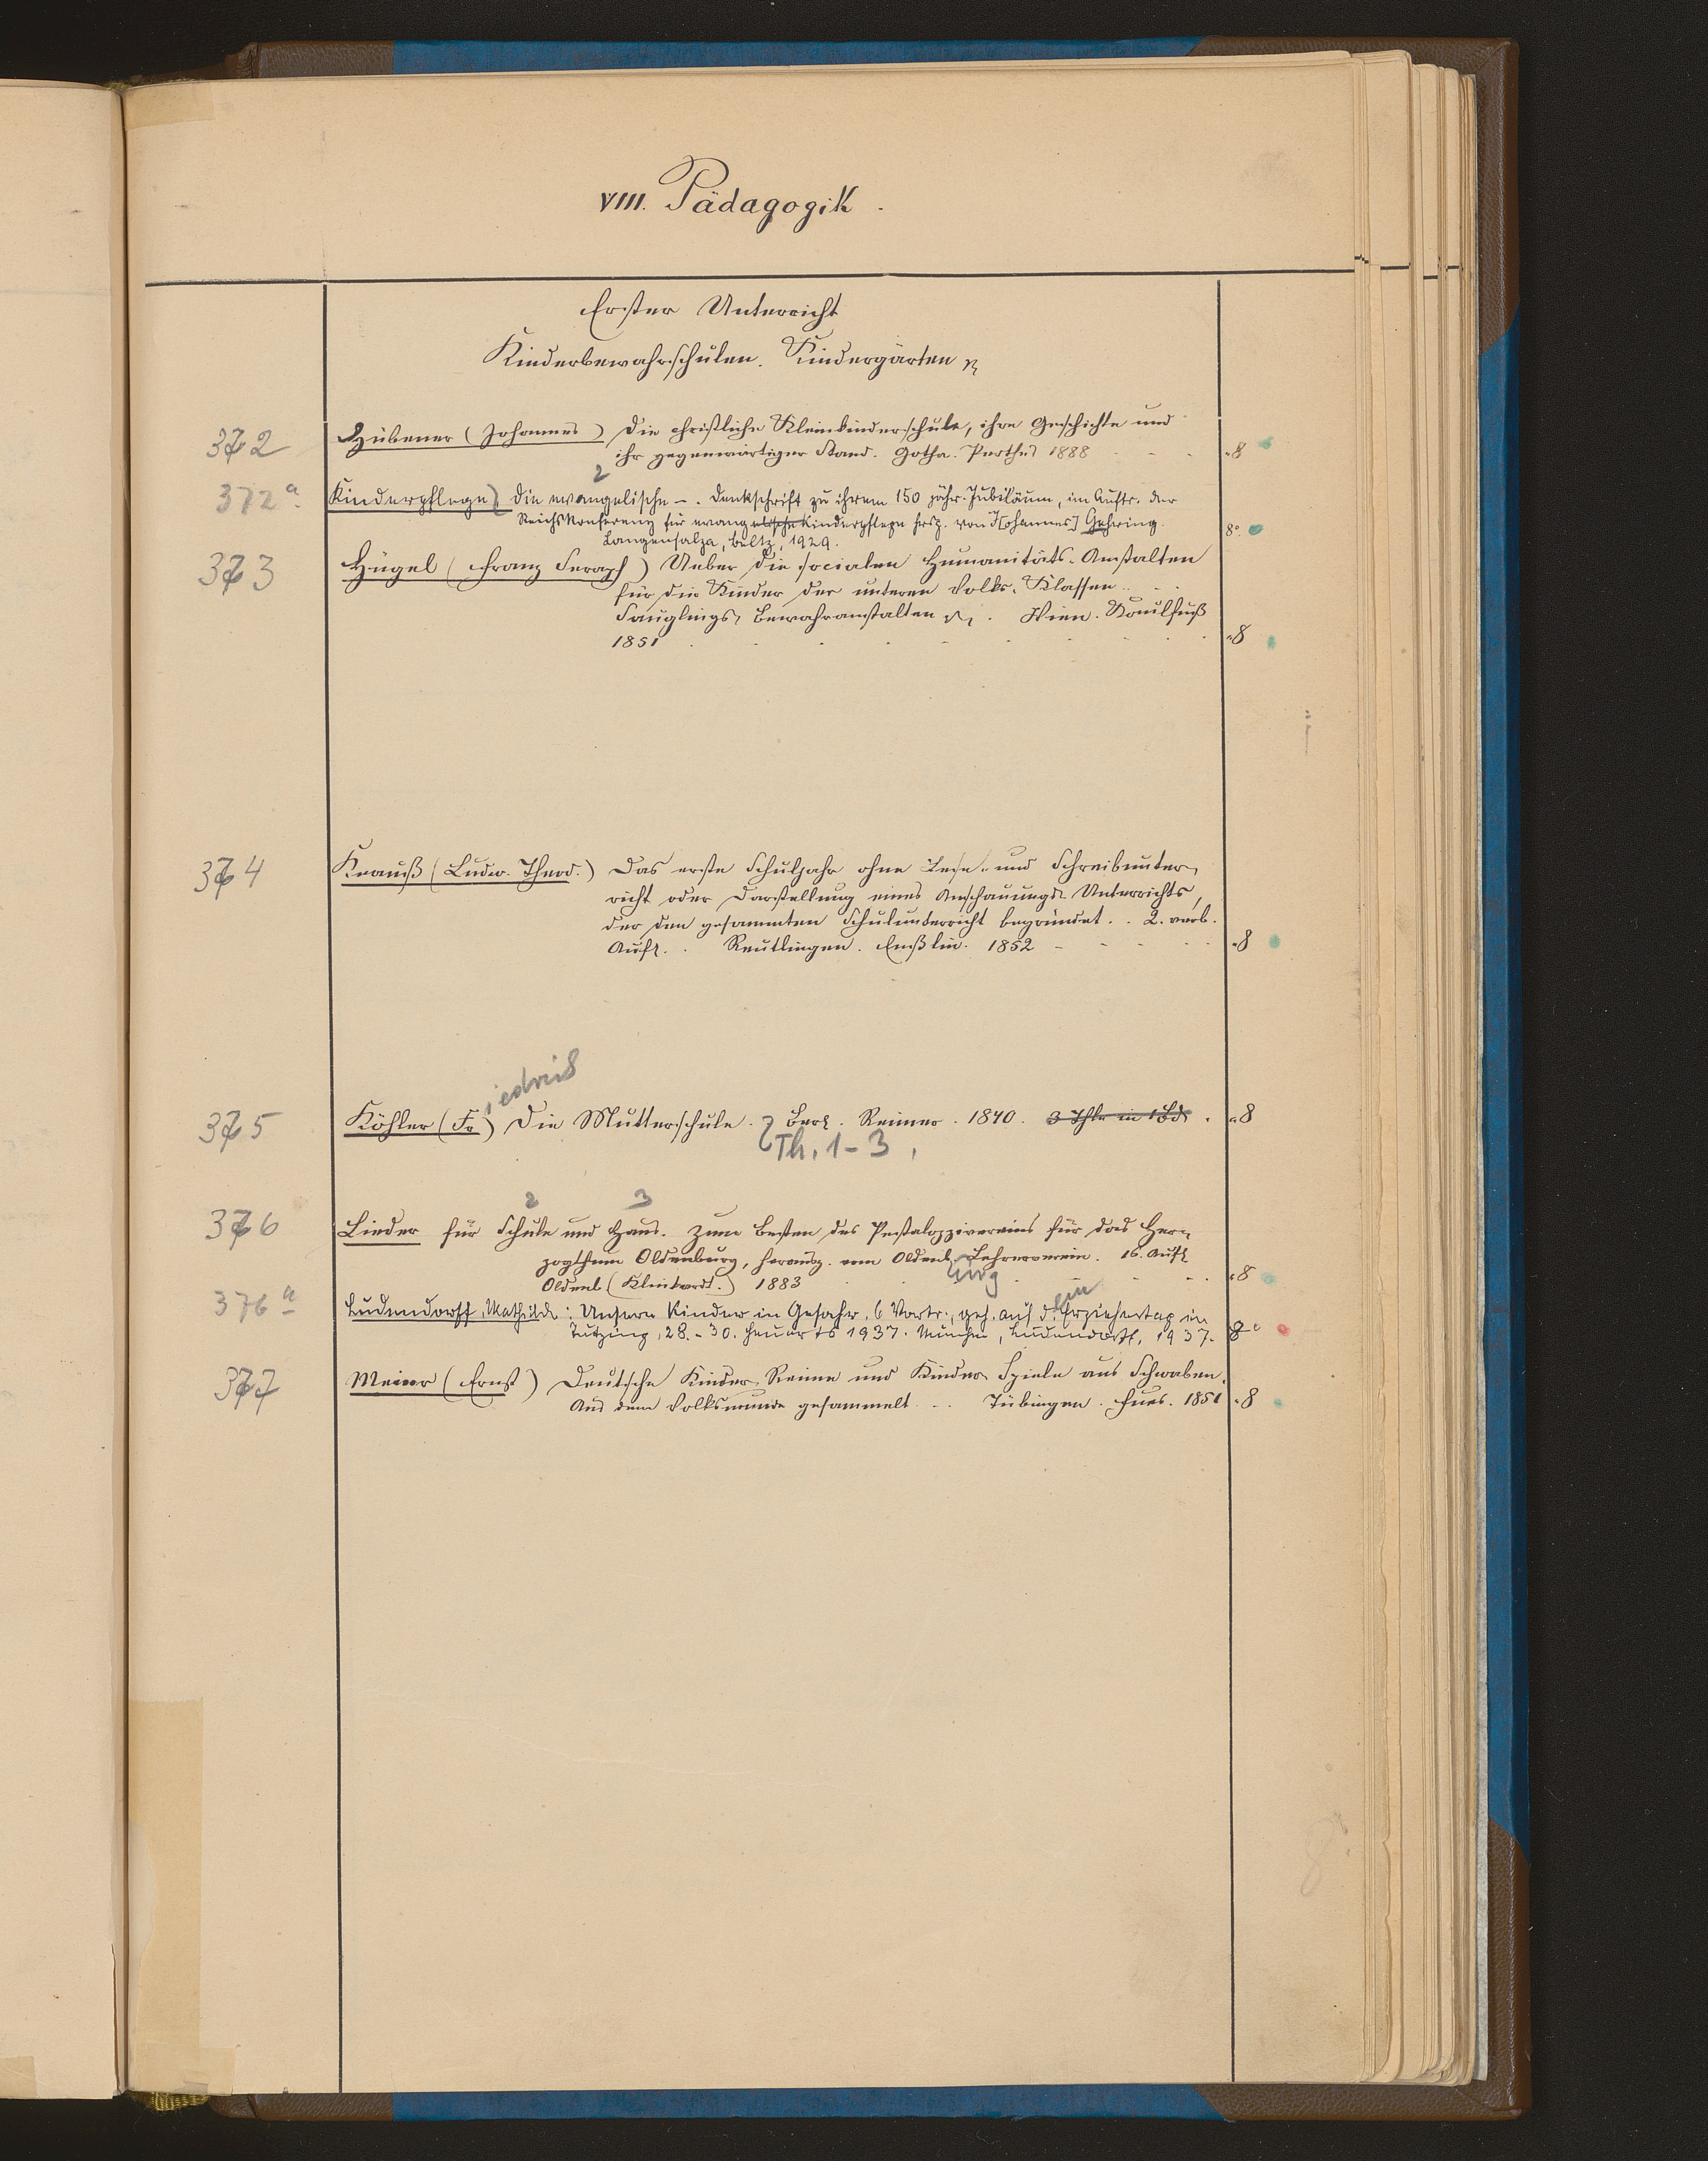 VIII. Pädagogik.
Erster Unterricht
Kinderbewahrschulen. Kindergärten
372 Hübener (Johannes) Die christliche Kleinkinderschule, ihre Geschichte und
ihr gegenwärtiger Stand. Gotha. Perthes 1888 8
2
372a Kinderpflege, Die evangelische –. Denkschrift zu ihrem 150 jähr. Jubiläum, im Auftr. der
Reichskonferenz für evangelische Kinderpflege hrsg. von J[ohannes] Gehring.
Langensalza, Beltz, 1929. 8°
373 Hügel (Franz Seraph) Ueber die socialen Humanitäts-Anstalten
für die Kinder der unteren Volks-Klassen ..
Säuglings-Bewahranstalten. Wien. Kaulfuß
1851 8
374 Krauß (Ludw. Theod.) Das erste Schuljahr ohne Lese- und Schreibunter-
richt oder Darstellung eines Anschauungs-Unterrichts,
der den gesammten Schulunterricht begründet.. 2. verb.
Aufl.. Reutlingen. Enßlin. 1852 8
iedrich
375 Köhler (Fr) Die Mutterschule. Berl. Reimer. 1840. 3 Thle in 1 Bd. 8
Th. 1-3.
2 3
376 Lieder für Schule und Haus. Zum Besten des Pestalozzivereins für das Her-
zogthum Oldenburg, herausg. vom Oldenb. Lehrerverein. 16. Aufl
urg
Oldenb (Klinkardt.) 1883 8
ein
376a Ludendorff, Mathilde: Unsere Kinder in Gefahr. 6 Vortr., geh. auf d. Erziehertag in
Tutzing, 28.-30. Heuerts 1937. München, Ludendorff, 1937. 8°
377 Meier (Ernst) Deutsche Kinder-Reime und Kinder-Spiele aus Schwaben.
Aus dem Volksmunde gesammelt .. Tübingen. Fues. 1851 8
8°